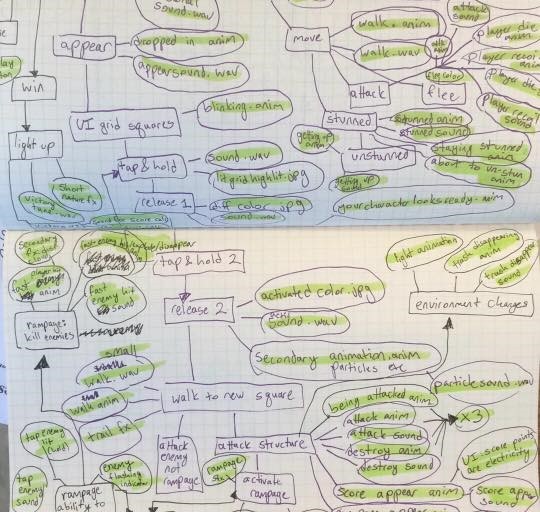 sound.wav
appear
dropped in anim
appearsound.wav
win
light up
UI grid squares
blinking.anim
tap & hold
sound.wav
litgridhighlit.jpg
release 1
diff color.jpg
sound.wav
short
victory
move
walk.anim
walk.wav
attack
sound
attack
flee
flee color
player die
anim
player recoil
anim
player die
player recoil
sound
stunned
stunned anim
stunned sound
getting up
anim
unstunned
staying stunned
anim
about to un-stun
anim
getting up
sound
your character looks ready.anim
tap & hold 2
secondary
fast
anim
fast
enemy hit
sound
rampage:
kill enemies
release 2
activated color.jpg
sound.wav
Secondary animation.anim
particles etc
particlesound.wav
fight animation
truck disappearing
anim
truck disappear
sound
environment changes
small
walk.wav
walk anim
trail fx
walk to new square
tap enemy
hit
tap
enemy
sound
enemy
flashing
indicator
rampage
ability to
attack
enemy
not
rampage
attack structure
rampage
activate
rampage
being attacked anim
attack anim
attack sound
destroy anim
destroy sound
x3
UI-score points
are electricity
Score appear anim
score appear
sound